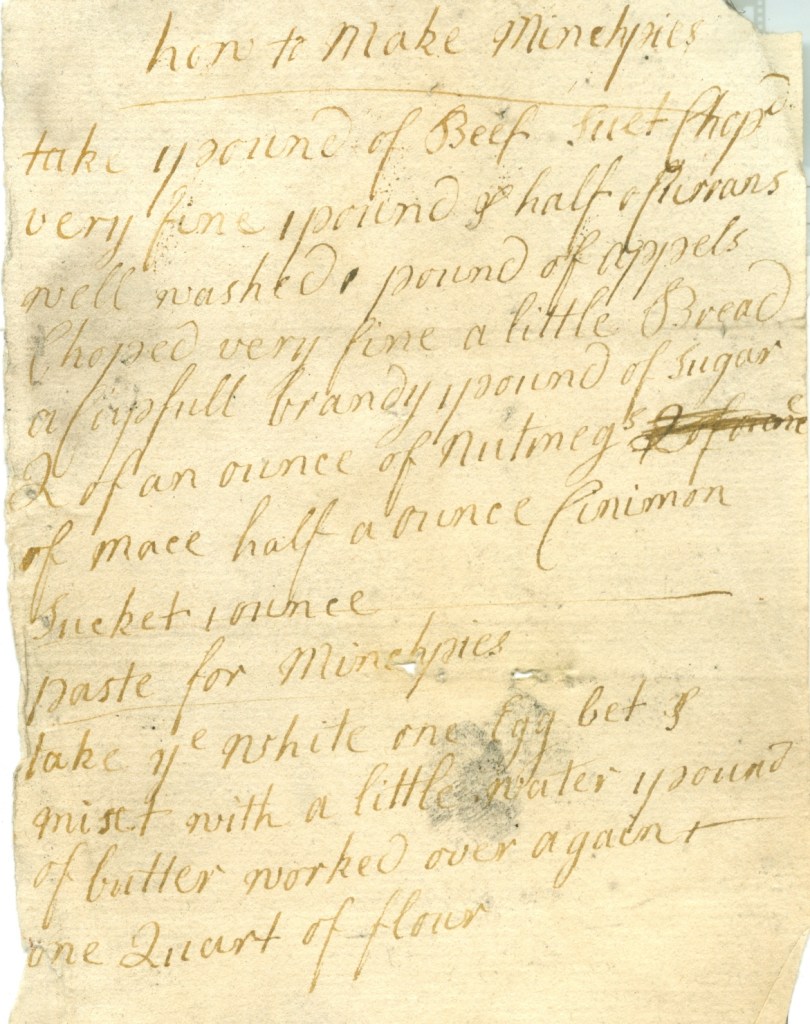 how to Make Minchpies
take 1 pound of Beef Suet Chopd
very fine 1 pound & half of Currans
well washed 1 pound of appels
Choped very fine a little Bread
a Cupfull brandy 1 pound of Sugar
2 of an ounce of Nutmegs
of mace half a ounce Cinimon
Sucket 1 ounce
paste for Minchpies
take ye white one Egg bet &
mixt with a little water 1 pound
of butter worked over again +
one Quart of flour